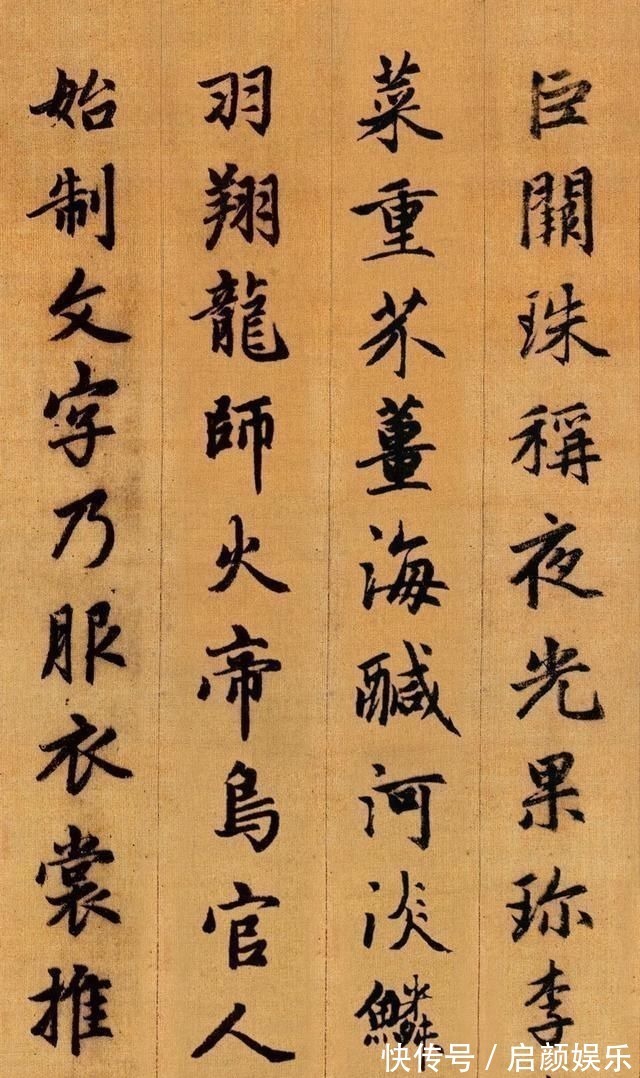 巨闕珠稱夜光果珎李
菜重芥薑海醎河淡鱗
羽翔龍師火帝鳥官人
始制文字乃服衣裳推
快传号 / 启颜娱乐